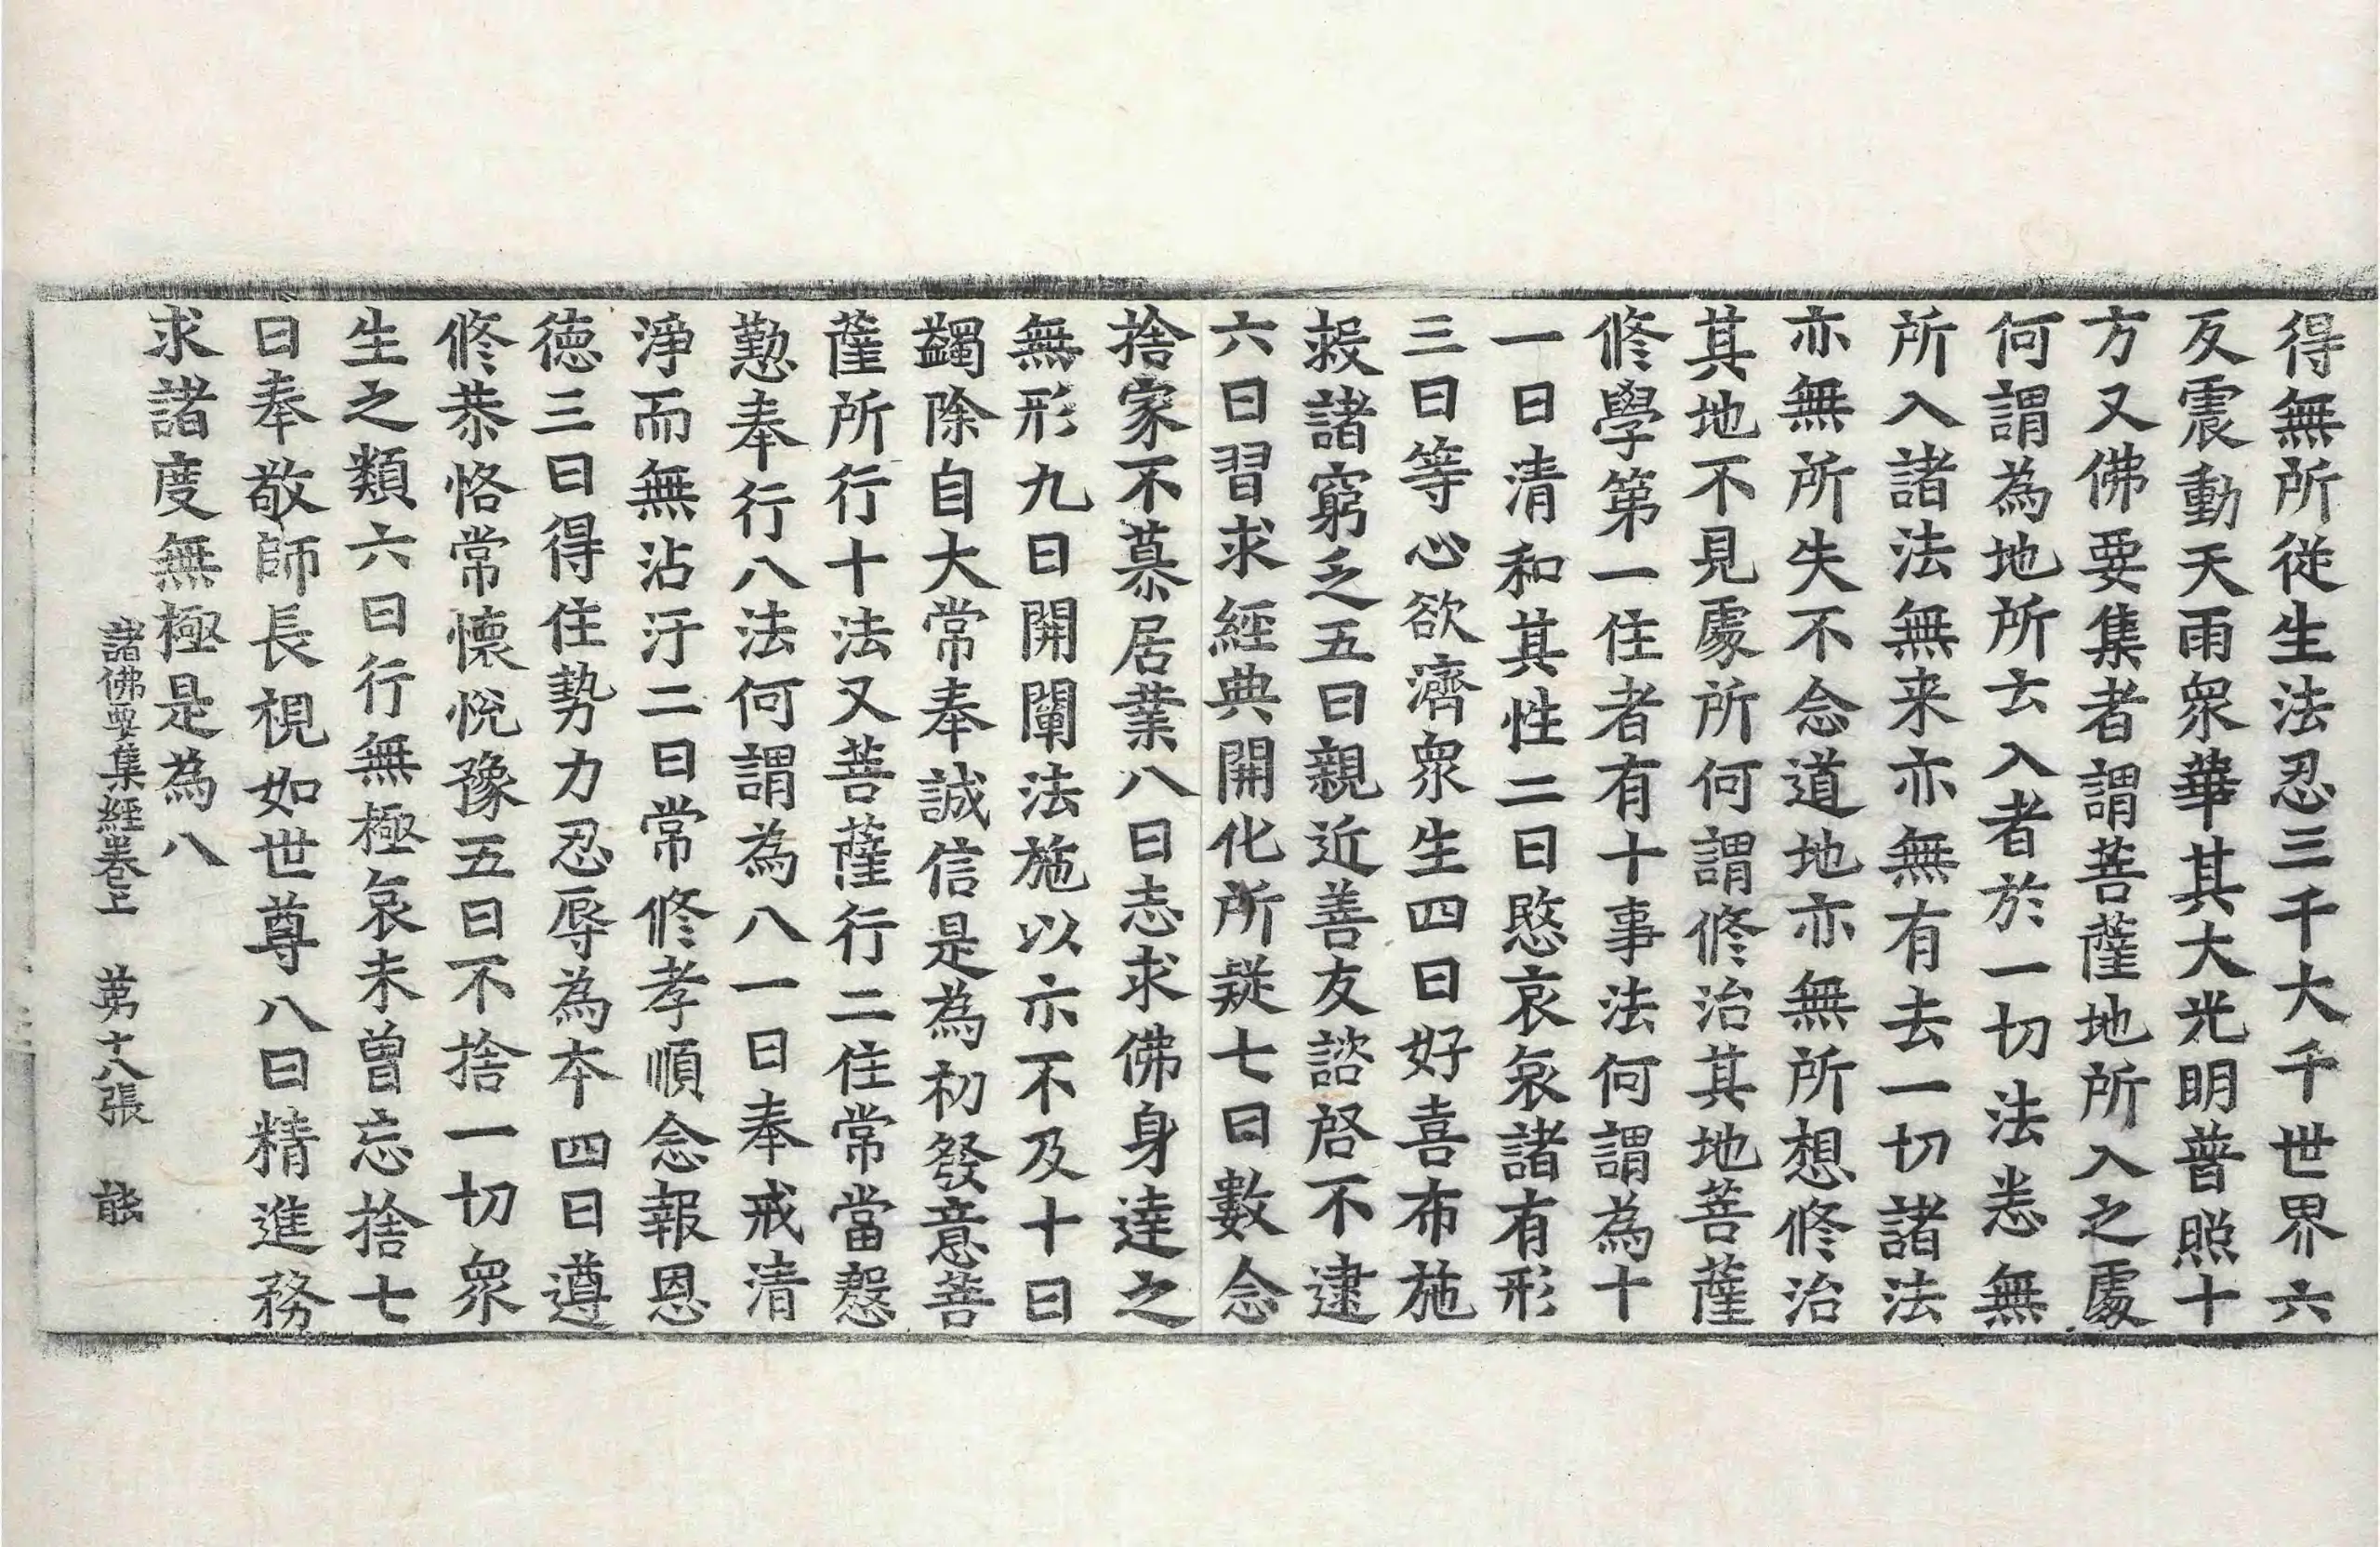 得無所從生法忍三千大千世界六
反震動天雨衆華其大光明普照十
方又佛要集者謂菩薩地所入之處
何謂為地所去入者於一切法悉無
所入諸法無来亦無有去一切諸法
亦無所失不念道地亦無所想修治
其地不見處所何謂修治其地菩薩
修學第一住者有十事法何謂為十
一曰清和其性二曰愍哀哀諸有形
三曰等心欲濟衆生四曰好喜布施
救諸窮乏五曰親近善友諮啓不逮
六曰習求經典開化所疑七曰數念
捨家不慕居業八曰志求佛身達之
無形九曰開闡法施以示不及十曰
蠲除自大常奉誠信是為初發意菩
薩所行十法又菩薩行二住常當慇
懃奉行八法何謂為八一曰奉戒清
淨而無沾汙二曰常修孝順念報恩
德三曰得住勢力忍辱為本四曰遵
修恭恪常懷悅豫五曰不捨一切衆
生之類六曰行無極哀未曽忘捨七
曰奉敬師長視如世尊八曰精進務
求諸度無極是為八
諸佛要集經卷上　第十八張　能